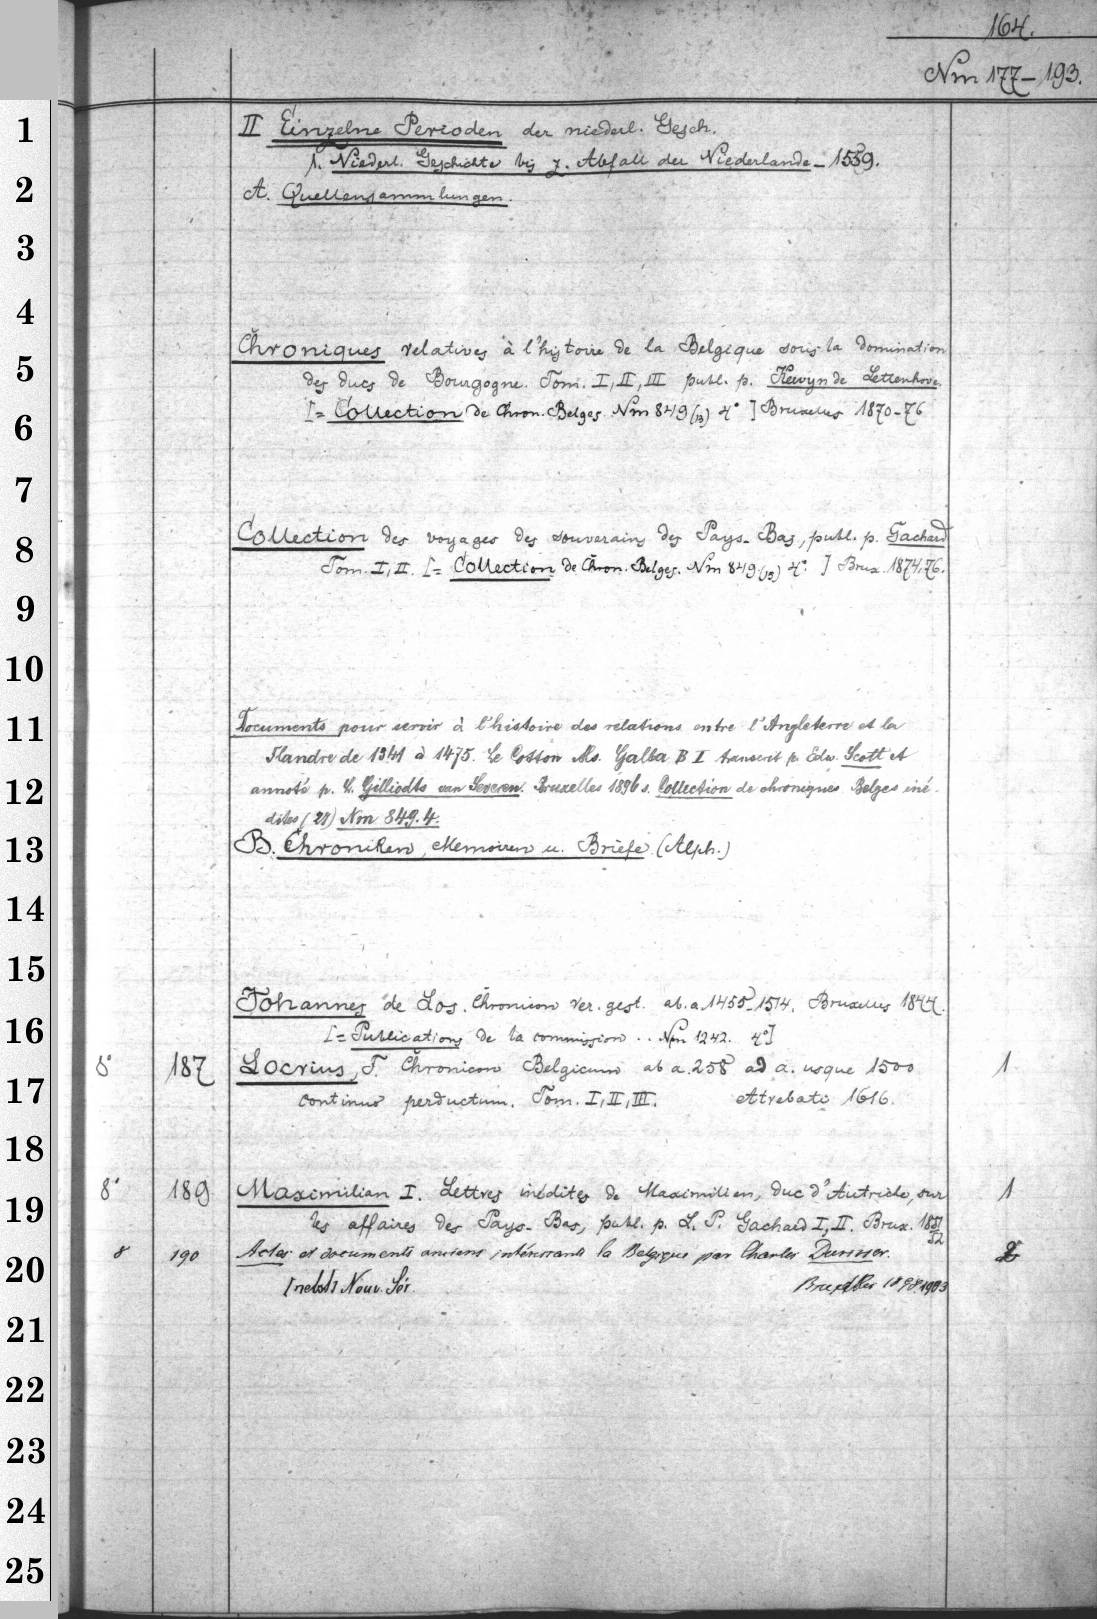 164.
Nm 177–193.
II Einzelne Perioden der niederl. Gesch.
1. Niederl. Geschichte bis z. Abfall der Niederlande – 1559.
A. Quellensammlungen.
Chroniques relatives à l'histoire de la Belgique sous la domination
des ducs de Bourgogne. Tom. I, II, III publ. p. Kervyn de Lettenhove.
[= Collection de Chron. Belges. Nm 849 (13) 4° ] Bruxelles 1870–76
Collection des voyages des souverains des Pays-Bas, publ. p. Gachard
Tom. I, II. [= Collection de Chron. Belges. Nm 849 (12) 4°. ] Brux. 1874,76.
Documents pour servir à l'histoire des relations entre l'Angleterre et la
Flandre de 1341 à 1475. Le Cotton Ms. Galba B I transcrit p. Edw. Scott et
annoté p. L. Gilliodts van Severen. Bruxelles 1896 s. Collection de chroniques Belges iné-
dites (21) Nm 849.4.
B. Chroniken, Memoiren u. Briefe. (Alph.)
Johannes de Los. Chronicon rer. gest. ab. a. 1455–1514. Bruxelles 1844.
[= Publications de la commission .. Nm 1242. 4°]
8° 187 Locrius, F. Chronicon Belgicum ab a. 258 ad a. usque 1500 1
continuo perductum. Tom. I, II, III. Atrebati 1616.
8° 189 Maximilian I. Lettres inédites de Maximilien, duc d'Autriche, sur 1
les affaires des Pays-Bas, publ. p. L. P. Gachard I, II. Brux. 1851/52
8 190 Actes et documents anciens intéressants la Belgique par Charles Duvivier. 2
[nebst] Nouv. Sér. Bruxelles 1898.1903
1
2
3
4
5
6
7
8
9
10
11
12
13
14
15
16
17
18
19
20
21
22
23
24
25